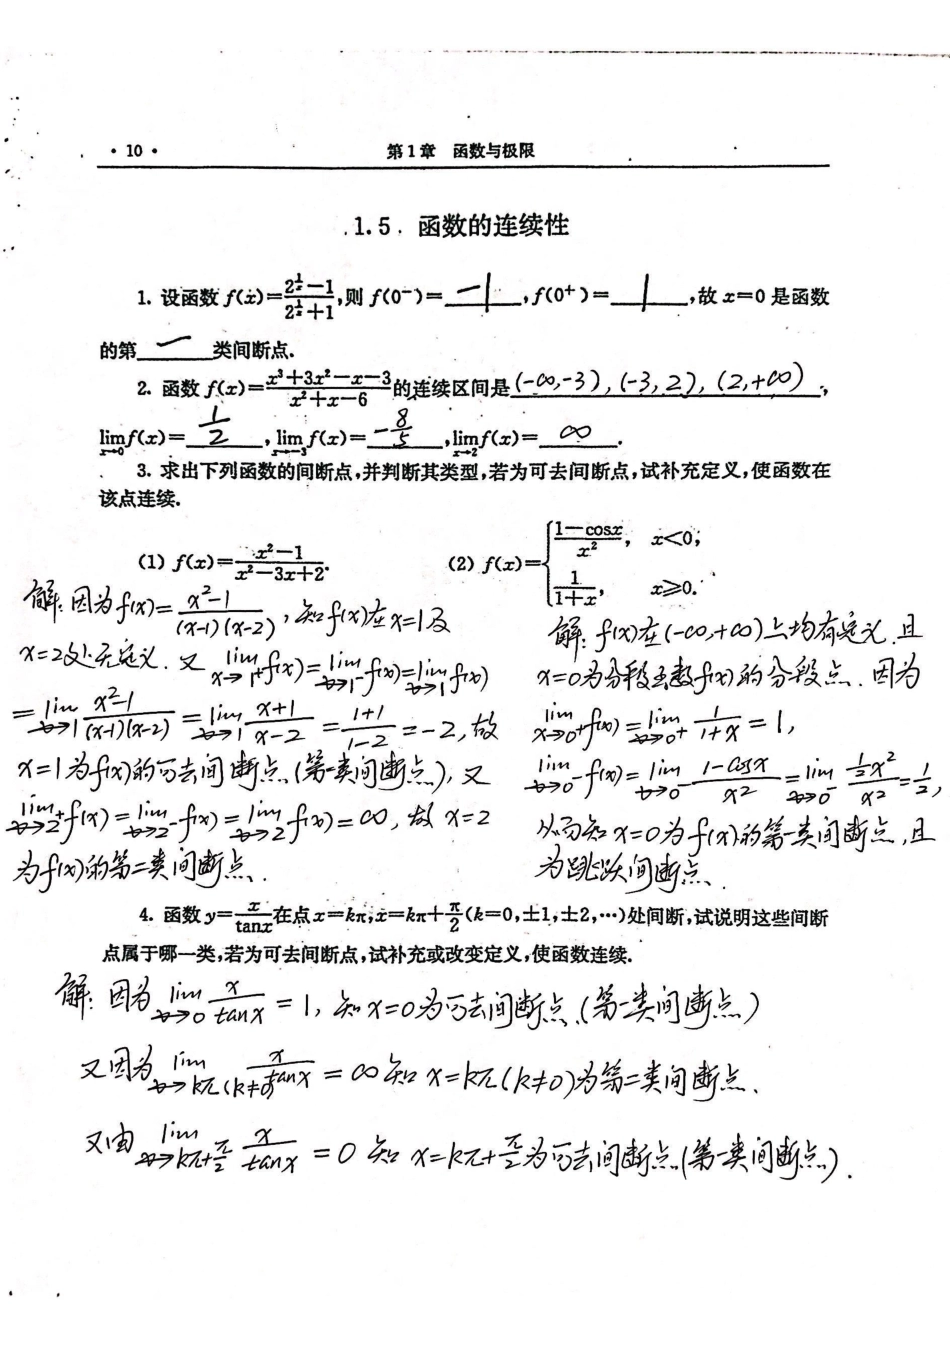 ·10·
第1章 函数与极限
1.5. 函数的连续性
1. 设函数 f(x)=(2^{1/x}-1)/(2^{1/x}+1),则 f(0⁻)=-1,f(0⁺)=1,故 x=0 是函数
的第一类间断点.
2. 函数 f(x)=(x³+3x²-x-3)/(x²+x-6)的连续区间是(-∞,-3),(-3,2),(2,+∞),
lim_{x→0} f(x)=1/2,lim_{x→-3} f(x)=-8/5,lim_{x→2} f(x)=∞.
3. 求出下列函数的间断点,并判断其类型,若为可去间断点,试补充定义,使函数在
该点连续.
(1) f(x)=(x²-1)/(x²-3x+2).
解: 因为f(x)=(x²-1)/((x-1)(x-2)), 知f(x)在x=1及
x=2处无定义. 又 lim_{x→1⁺}f(x)=lim_{x→1⁻}f(x)=lim_{x→1}f(x)
=lim_{x→1} (x²-1)/((x-1)(x-2))=lim_{x→1} (x+1)/(x-2)=(1+1)/(1-2)=-2,故
x=1为f(x)的可去间断点.(第一类间断点),又
lim_{x→2⁺}f(x)=lim_{x→2⁻}f(x)=lim_{x→2}f(x)=∞, 故x=2
为f(x)的第二类间断点.
(2) f(x)={(1-cosx)/x², x<0; 1/(1+x), x≥0.
解: f(x)在(-∞,+∞)上均有定义.且
x=0为分段函数f(x)的分段点.因为
lim_{x→0⁺}f(x)=lim_{x→0⁺} 1/(1+x)=1,
lim_{x→0⁻}f(x)=lim_{x→0⁻} (1-cosx)/x²=lim_{x→0⁻} (½x²)/x²=1/2,
从而知x=0为f(x)的第一类间断点,且
为跳跃间断点.
4. 函数 y=x/tanx在点 x=kπ,x=kπ+π/2(k=0,±1,±2,…)处间断,试说明这些间断
点属于哪一类,若为可去间断点,试补充或改变定义,使函数连续.
解: 因为 lim_{x→0} x/tanx=1, 知x=0为可去间断点.(第一类间断点)
又因为 lim_{x→kπ(k≠0)} x/tanx=∞ 知 x=kπ(k≠0)为第二类间断点.
又由 lim_{x→kπ+π/2} x/tanx=0 知 x=kπ+π/2为可去间断点.(第一类间断点).